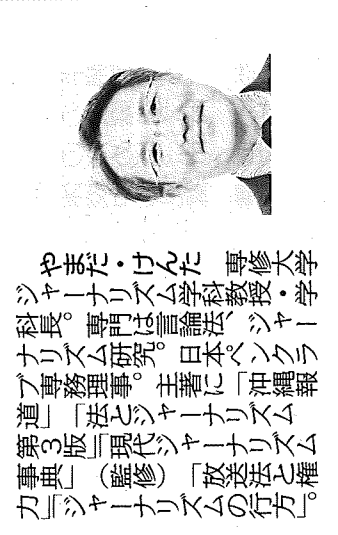 やまだ・けんた　専修大学
ジャーナリズム学科教授・学
科長。専門は言論法、ジャー
ナリズム研究。日本ペンクラ
ブ専務理事。主著に「沖縄報
道」「法とジャーナリズム
第3版」「現代ジャーナリズム
事典」（監修）「放送法と権
力」「ジャーナリズムの行方」。